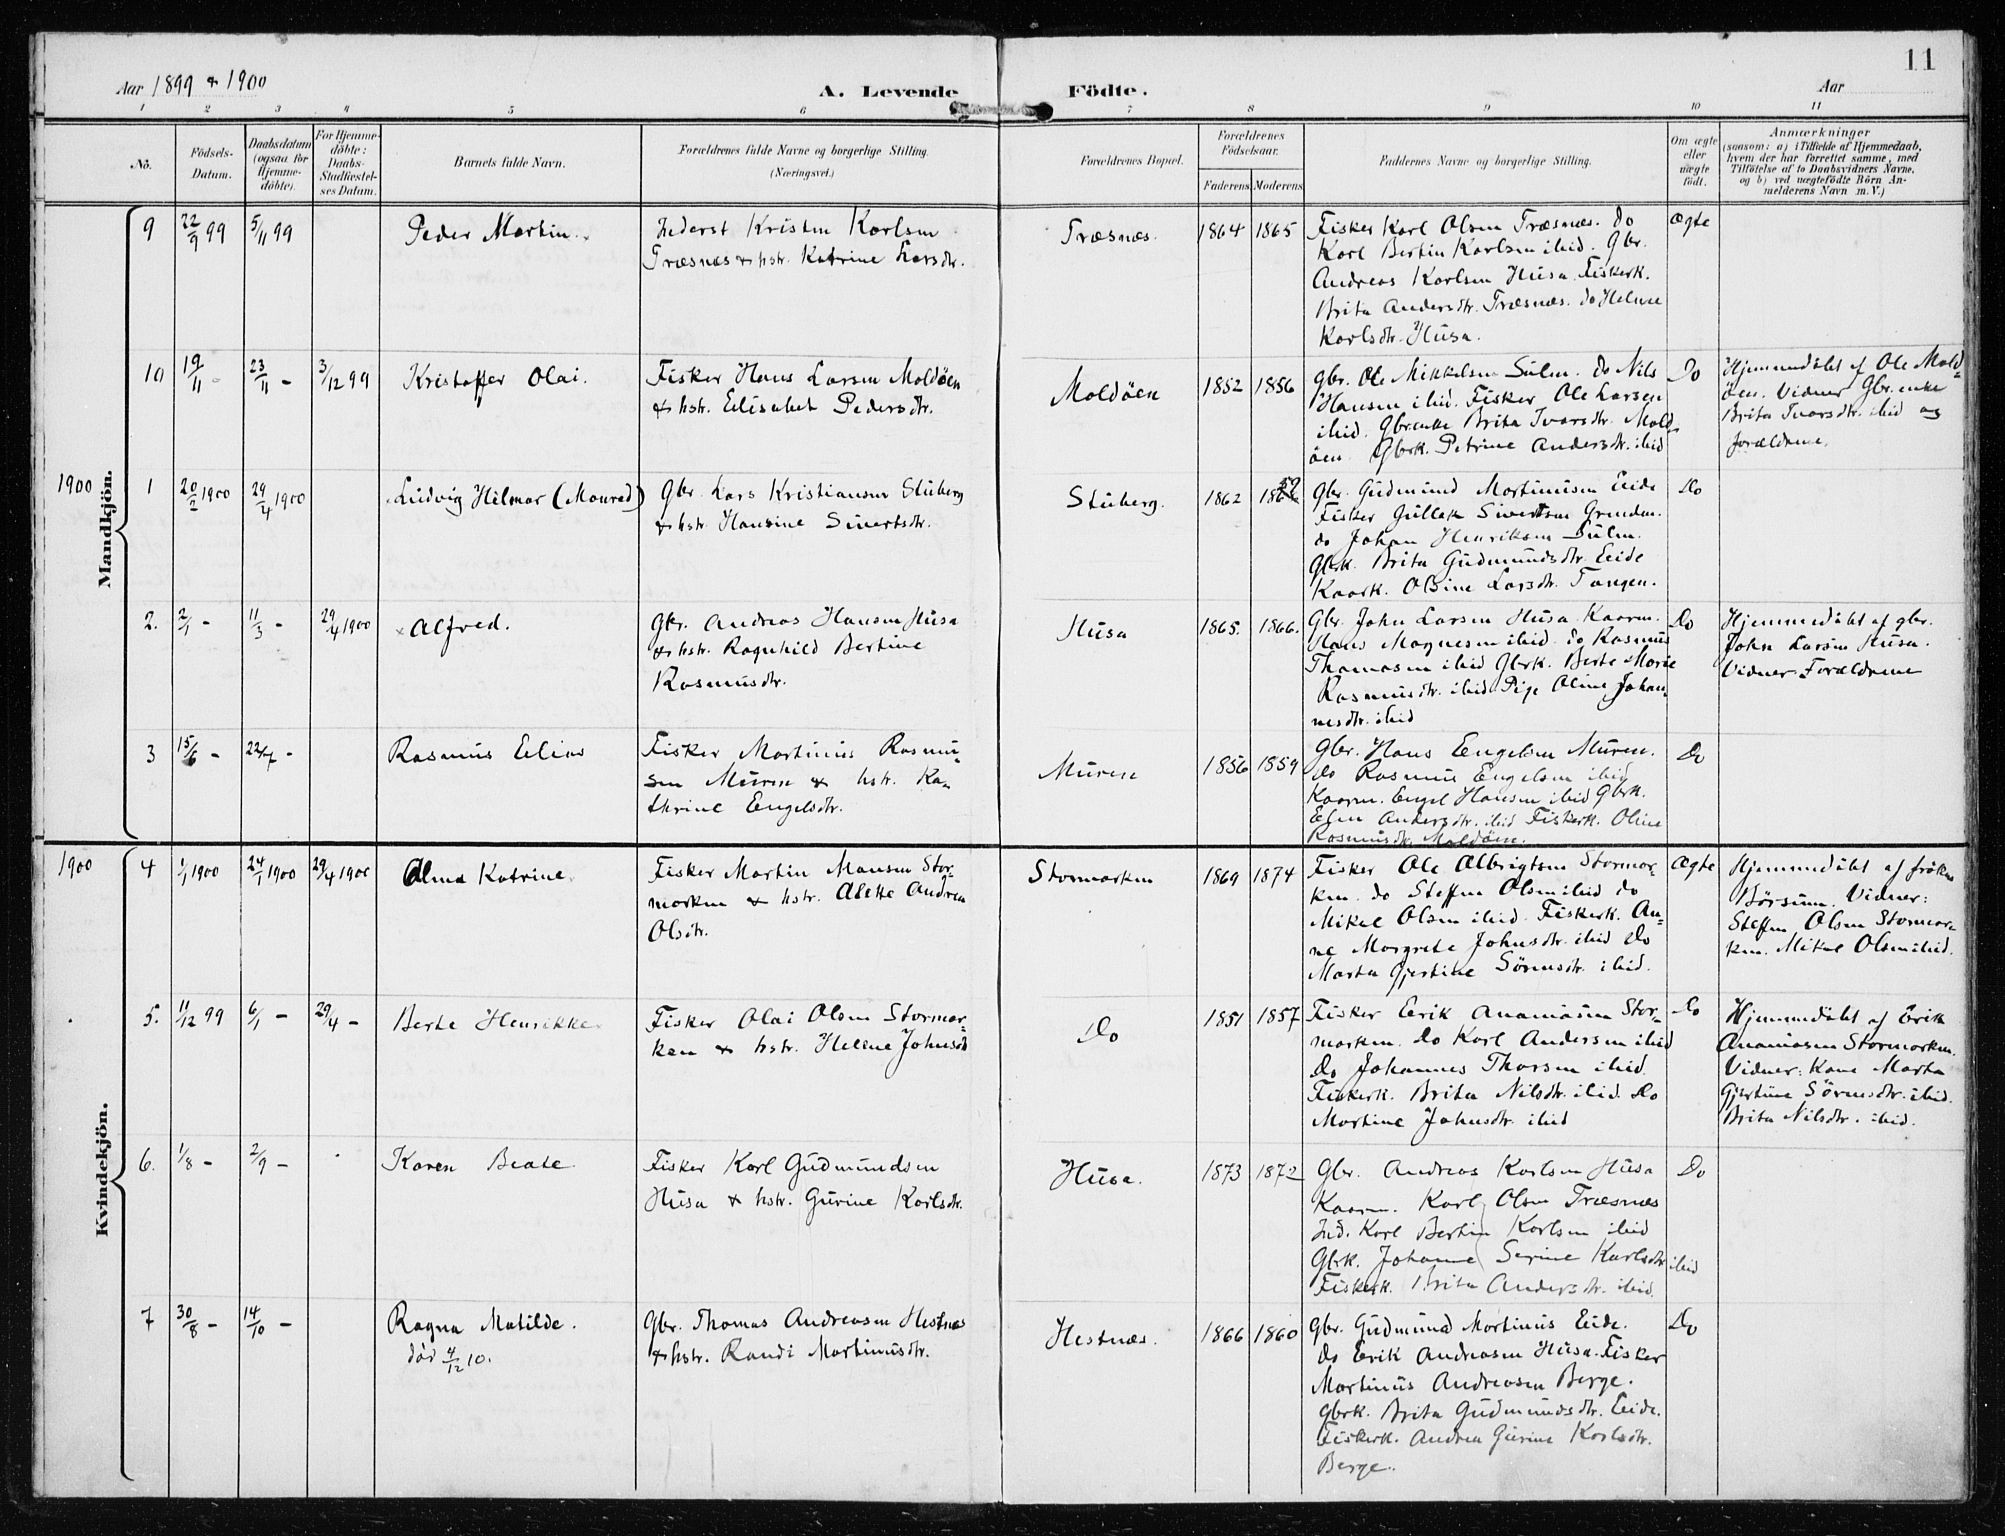 11
Aar 1899 & 1900
A. Levende Födte.
Aar
1 2 3 4 5 6 7 8 9 10 11
No.
Födsels-
Datum.
Daabsdatum
(ogsaa for
Hjemme-
döbte).
For Hjemme-
döbte:
Daabs-
Stadfæstel-
ses Datum.
Barnets fulde Navn.
Forældrenes fulde Navne og borgerlige Stilling.
(Næringsvei.)
Forældrenes Bopæl.
Forældrenes
Födselsaar.
Faderens Moderens
Faddernes Navne og borgerlige Stilling.
Om ægte
eller
uægte
födt.
Anmærkninger
(saasom: a) i Tilfælde af Hjemmedaab,
hvem der har forrettet samme, med
Tilföielse af to Daabsvidners Navne,
og b) ved uægtefödte Börn An-
melderens Navn m. V.)
Mandkjön.
9
22/9 99
5/11 99
Peder Martin.
Inderst Kristen Karlsen
Træsnæs & hstr. Katrine Larsdtr.
Træsnæs.
1864 1865
Fisker Karl Olsen Træsnæs. do
Karl Bertin Karlsen ibid. Gbr.
Andreas Karlsen Husa. Fiskerk.
Brita Andersdtr. Træsnæs. do Helene
Karlsdtr. Husa.
Ægte
10
19/11 -
23/11 -
3/12 99
Kristoffer Olai.
Fisker Hans Larsen Moldöen
& hstr. Elisabet Pedersdtr.
Moldöen
1852 1856
Gbr. Ole Mikkelsen Sulen. do Nils
Hansen ibid. Fisker Ole Larsen
ibid. Gbrenke Brita Ivarsdtr. Mold-
öen. Gbrk. Petrine Andersdtr. ibid
Do
Hjemmedöbt af Ole Mold-
öen. Vidner Gbr.enke
Brita Ivarsdtr. ibid og
Forældrene.
1900
1
20/2 1900
29/4 1900
Ludvig Hilmar (Monrad)
Gbr. Lars Kristiansen Stuberg
& hstr. Hansine Sivertsdtr.
Stuberg.
1862
Gbr. Gudmund Martinusen Eide
Fisker Gullak Sivertsen Grunden.
do Johan Henriksen Sulen.
Gbrk. Brita Gudmundsdtr. Eide
Kaark. Olsine Larsdtr. Tangen.
Do
2.
2/1 -
11/3 -
29/4 1900
× Alfred.
Gbr. Andreas Hansen Husa
& hstr. Ragnhild Bertine
Rasmusdtr.
Husa
1865. 1866.
Gbr. John Larsen Husa. Kaarm.
Hans Magnesen ibid. do Rasmus
Thomasen ibid Gbrk. Berte Marie
Rasmusdtr. ibid Pige Oline Johan-
nesdtr. ibid
Do
Hjemmedöbt af gbr.
John Larsen Husa.
Vidner: Forældrene
3
15/6 -
22/7 -
Rasmus Elias
Fisker Martinus Rasmu-
sen Muren & hstr. Ka-
thrine Engelsdtr.
Muren
1856 1859
Gbr. Hans Engelsen Muren.
do Rasmus Engelsen ibid
Kaarm. Engel Hansen ibid Gbrk.
Elen Andersdtr. ibid Fiskerk. Oline
Rasmusdtr. Moldöen.
Do
Kvindekjön.
1900
4
1/1 1900
24/1 1900
29/4 1900
Alma Katrine.
Fisker Martin Monsen Stor-
marken & hstr. Alette Andrea
Olsdtr.
Stormarken
1869 1874
Fisker Ole Albrigtsen Stormar-
ken. do Steffen Olsen ibid do
Mikal Olsen ibid. Fiskerk. An-
ne Margrete Johnsdtr. ibid Do
Marta Gjertine Sörensdtr. ibid.
Ægte
Hjemmedöbt af fröken
Börsum. Vidner:
Steffen Olsen Stormar-
ken. Mikal Olsen ibid.
5.
11/12 99
6/1 -
29/4 -
Berte Henrikke.
Fisker Olai Olsen Stormar-
ken & hstr. Helene Johnsdtr
Do
1851 1857
Fisker Eerik Ananiasen Stor-
marken. do Karl Andersen ibid
Do Johannes Thorsen ibid.
Fiskerk. Brita Nilsdtr. ibid. Do
Martine Johnsdtr. ibid
Do
Hjemmedöbt af Erik
Ananiasen Stormarken.
Vidner: Kone Marta
Gjertine Sörensdtr. ibid.
Brita Nilsdtr. ibid.
6.
1/8 -
2/9 -
Karen Beate.
Fisker Karl Gudmundsen
Husa & hstr. Gurine Karlsdtr.
Husa.
1873 1872
Gbr. Andreas Karlsen Husa
Kaarm. Karl Olsen Træsnæs
Ind. Karl Bertin Karlsen ibid
Gbrk. Johanne Serine Karlsdtr ibid
Fiskerk. Brita Andersdtr. ibid.
Do
7
30/8 -
14/10 -
Ragna Matilde.
död 4/12 10.
Gbr. Thomas Andreasen Hestnæs
& hstr. Randi Martinusdtr.
Hestnæs.
1866 1860
Gbr. Gudmund Martinus Eide.
do Erik Andreasen Husa. Fisker
Martinus Andreasen Berge.
Gbrk. Brita Gudmundsdtr. Eide.
Fiskerk. Andrea Gurine Karlsdtr.
Berge.
Do